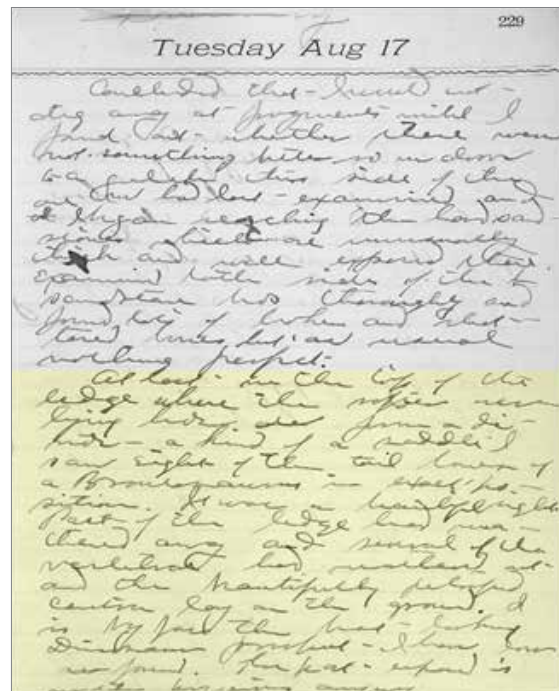 229
Tuesday Aug 17
Concluded that I would not
dig any at fragments until I
found out whether there were
not something better so went down
to a gulch this side of the
one we had last examined and
began searching the hard sand
stones which are unusually
thick and well exposed there.
Examined both sides of the
sandstone beds thoroughly and
found lots of broken and shat-
tered bones but as usual
nothing perfect.
At last in the top of the
ledge where the softer over
lying beds form a di-
vide - a kind of a saddle I
saw eight of the tail bones of
a Brontosaurus in exact po-
sition. It was a beautiful sight
Part of the ledge had wea-
thered away and several of the
vertebrae had weathered out
and the beautifully petrified
centra lay on the ground. It
is by far the best looking
Dinosaur prospect I have ever
found. The part exposed is
worth preserving anyway